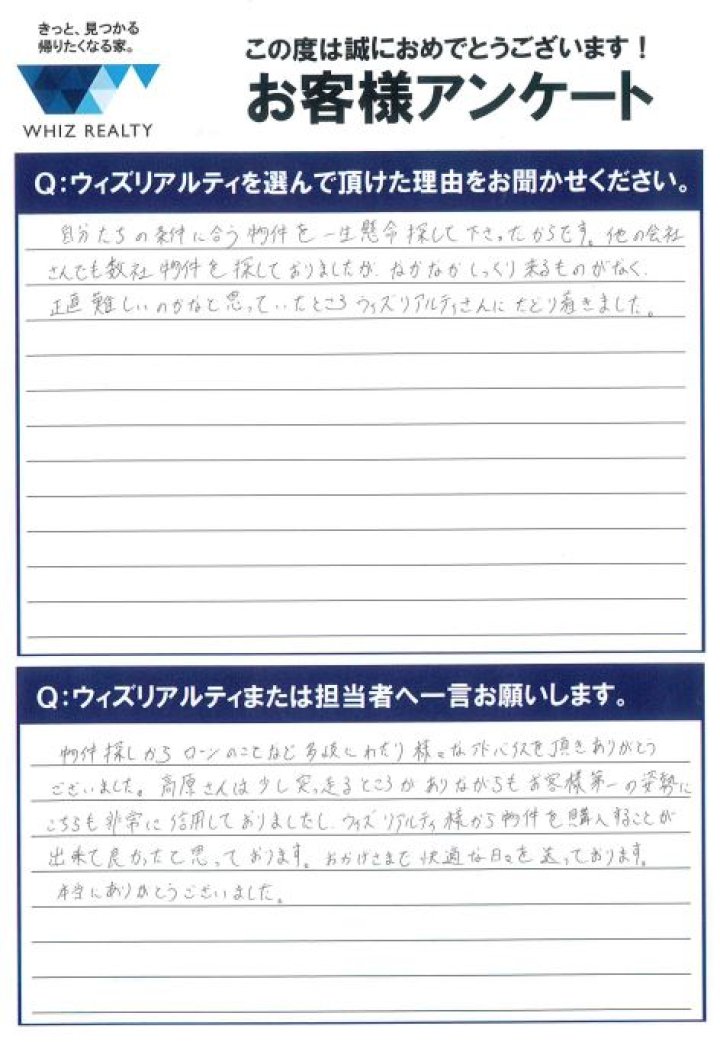 きっと、見つかる
帰りたくなる家。
WHIZ REALTY
この度は誠におめでとうございます！
お客様アンケート
Q：ウィズリアルティを選んで頂けた理由をお聞かせください。
自分たちの条件に合う物件を一生懸命探して下さったからです。他の会社
さんでも数社物件を探しておりましたが、なかなかしっくり来るものがなく、
正直難しいのかなと思っていたところウィズリアルティさんにたどり着きました。
Q：ウィズリアルティまたは担当者へ一言お願いします。
物件探しからローンのことなど多岐にわたり様々なアドバイスを頂きありがとう
ございました。高原さんは少し突っ走るところがありながらもお客様第一の姿勢に
こちらも非常に信用しておりましたし、ウィズリアルティ様から物件を購入することが
出来て良かったと思っております。おかげさまで快適な日々を送っております。
本当にありがとうございました。